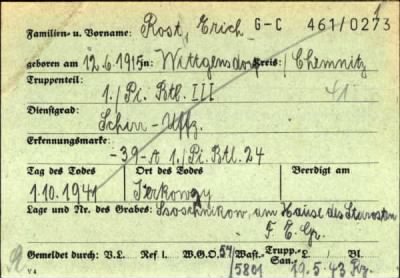 Familien- u. Vorname: Rost, Erich G-C 461/0273
geboren am 12.6.1915 in: Wittgensdorf Kreis: / Chemnitz
Truppenteil: 1./Pi. Btl. III 41
Dienstgrad: Schirr-Uffz.
Erkennungsmarke: -39- A 1./Pi. Btl. 24
Tag des Todes Ort des Todes Beerdigt am
1.10.1941
Lage und Nr. des Grabes: am Hause des Starosten
F. E. Gr.
Gemeldet durch: V.L. Ref I. W.G.O. 54/5801 Wast.- Trupp.- San.- L./ Bl.
19.5.43
V 4